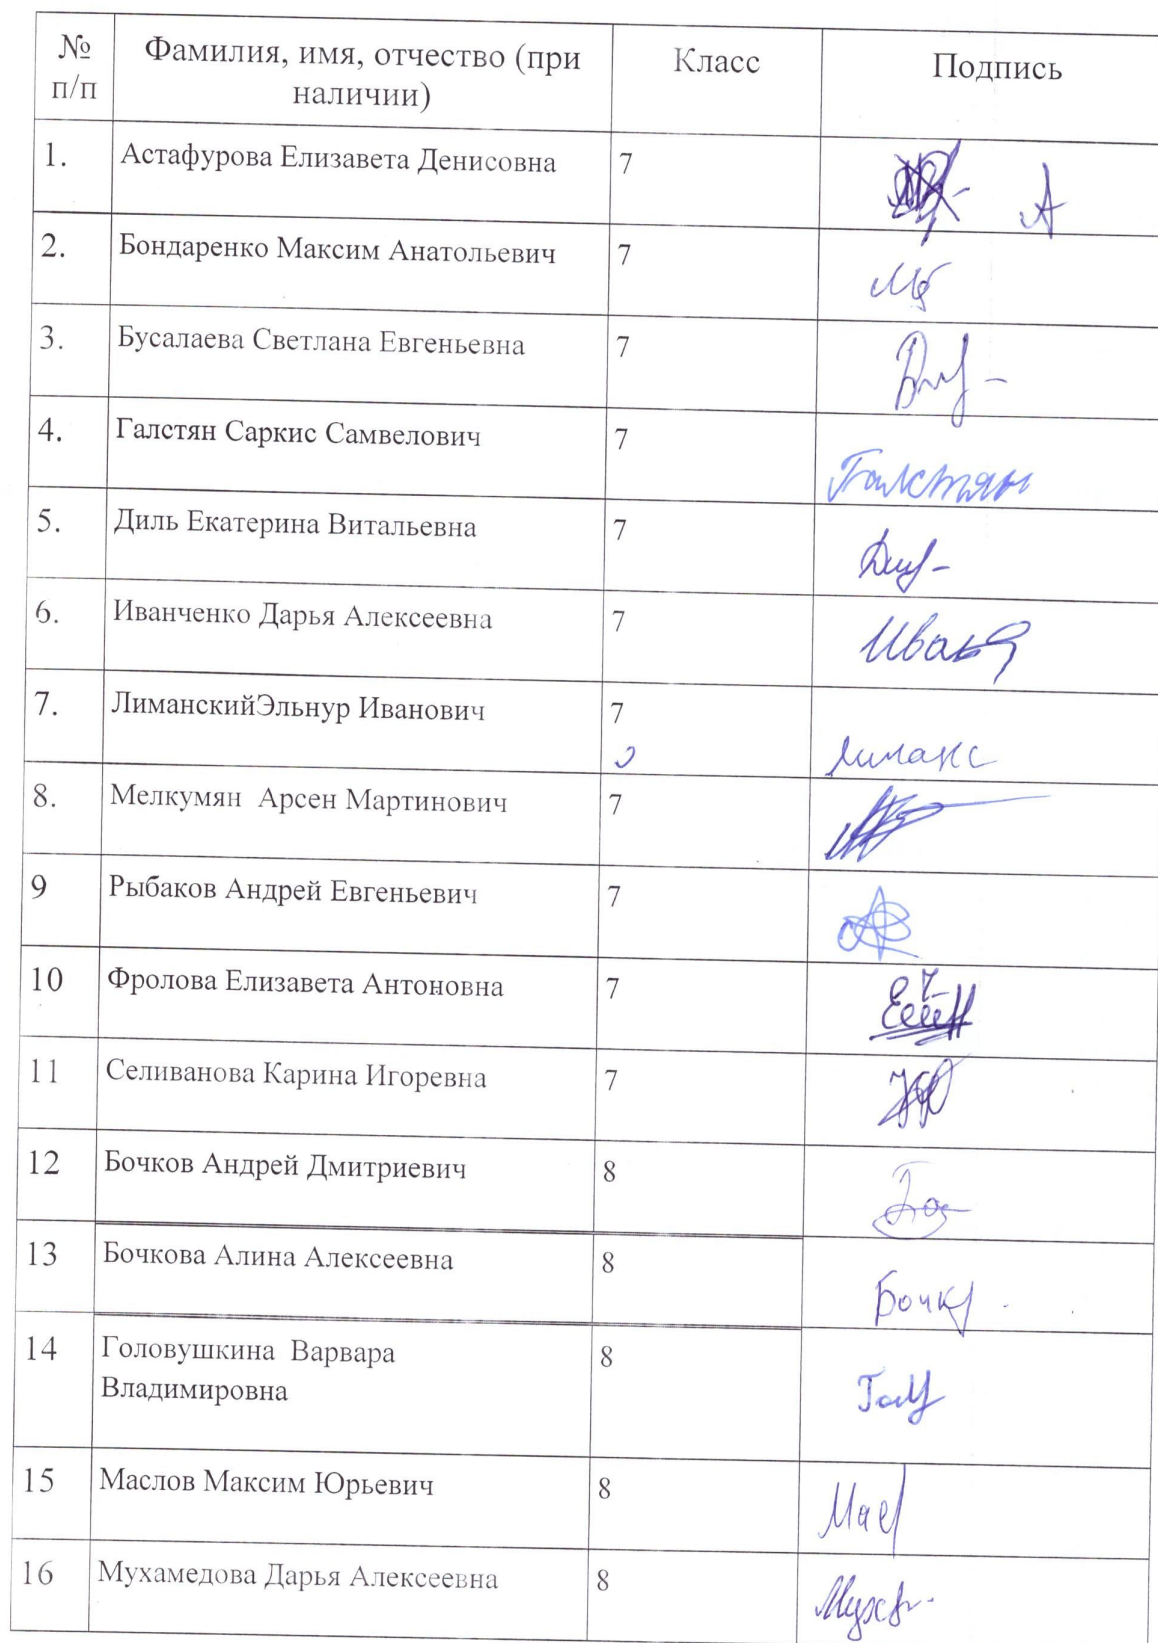 № п/п Фамилия, имя, отчество (при наличии) Класс Подпись
1. Астафурова Елизавета Денисовна 7 А
2. Бондаренко Максим Анатольевич 7
3. Бусалаева Светлана Евгеньевна 7
4. Галстян Саркис Самвелович 7 Галстян
5. Диль Екатерина Витальевна 7
6. Иванченко Дарья Алексеевна 7
7. ЛиманскийЭльнур Иванович 7 Лиманс
8. Мелкумян Арсен Мартинович 7
9 Рыбаков Андрей Евгеньевич 7
10 Фролова Елизавета Антоновна 7
11 Селиванова Карина Игоревна 7
12 Бочков Андрей Дмитриевич 8
13 Бочкова Алина Алексеевна 8 Бочк
14 Головушкина Варвара 8
Владимировна
15 Маслов Максим Юрьевич 8
16 Мухамедова Дарья Алексеевна 8